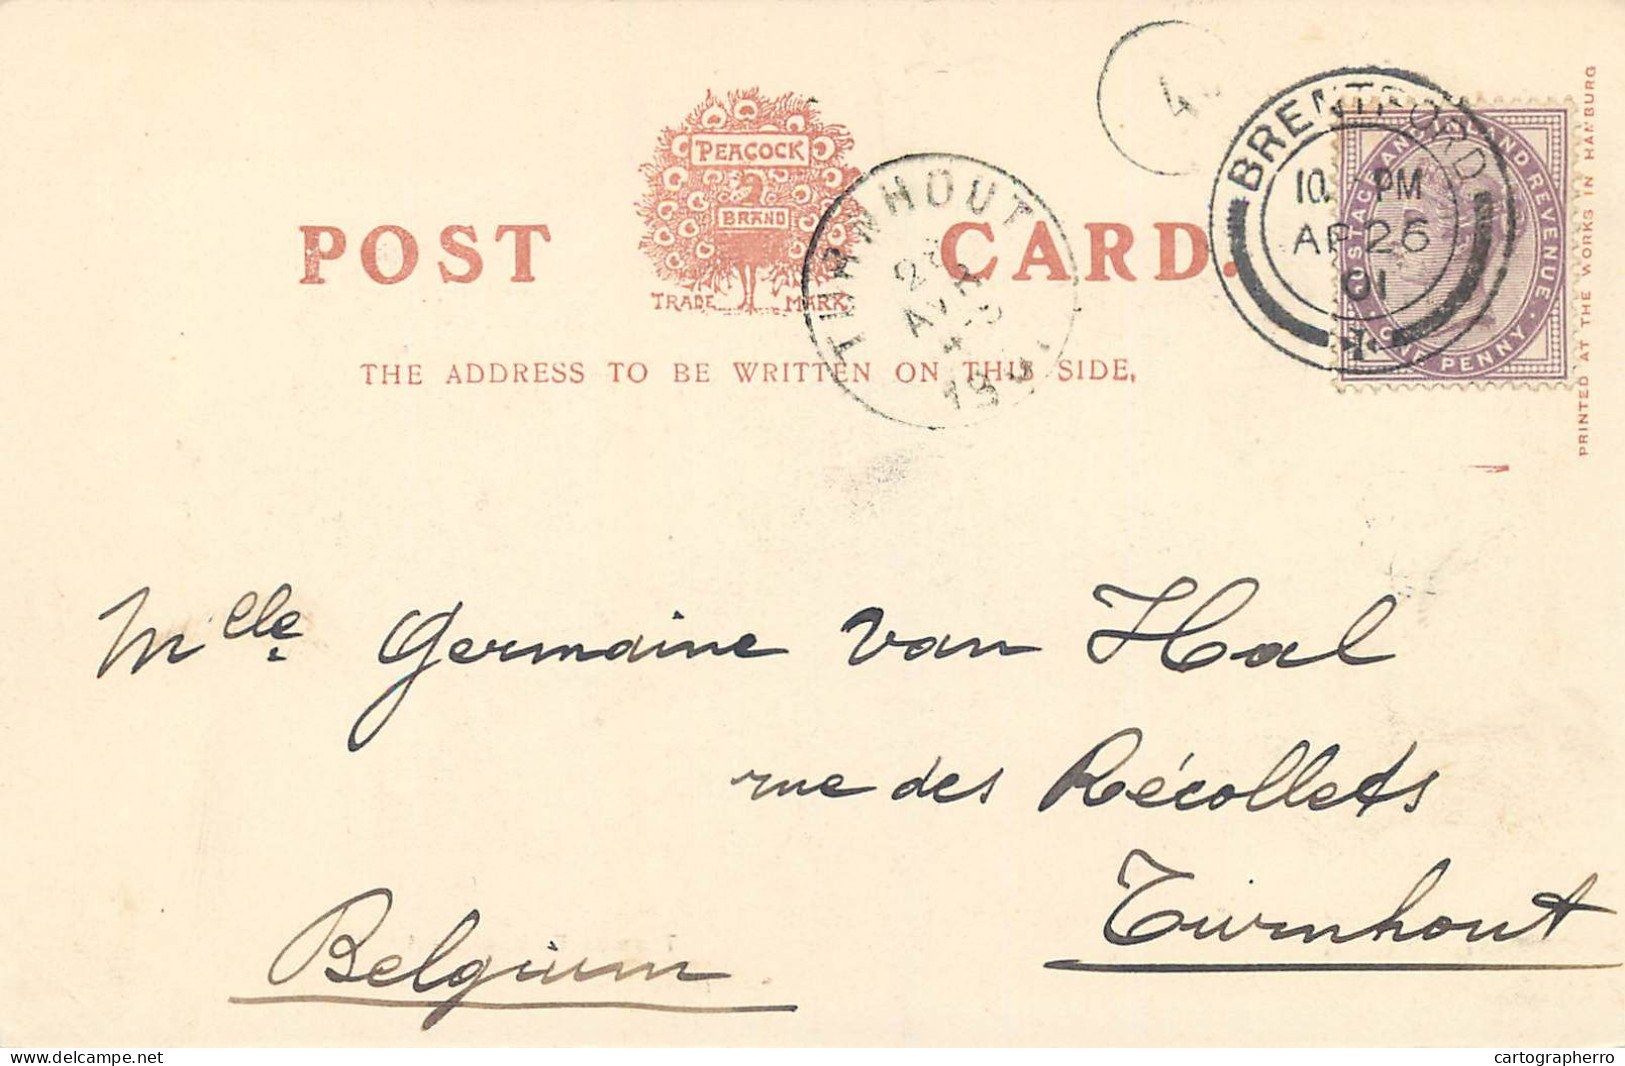 PEACOCK
BRAND
POST CARD.
TRADE MARK
THE ADDRESS TO BE WRITTEN ON THIS SIDE.
TURNHOUT
AVR
4
BRENTFORD
10 PM
AP 26
01
POSTAGE AND INLAND REVENUE
ONE PENNY
PRINTED AT THE WORKS IN HAMBURG
Mlle Germaine van Hal
rue des Récollets
Turnhout
Belgium
delcampe.net
cartographerro